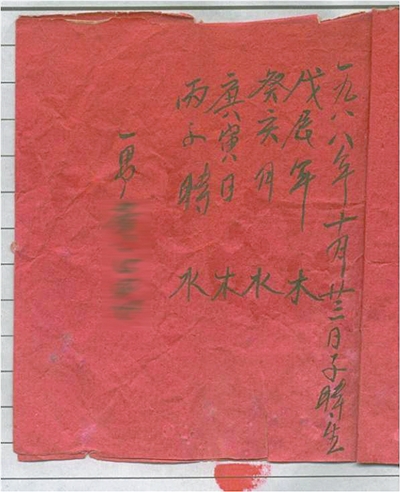 一九八八年十月廿三日子時生
戊辰年 木
癸亥月 水
庚寅日 木
丙子時 水
一男